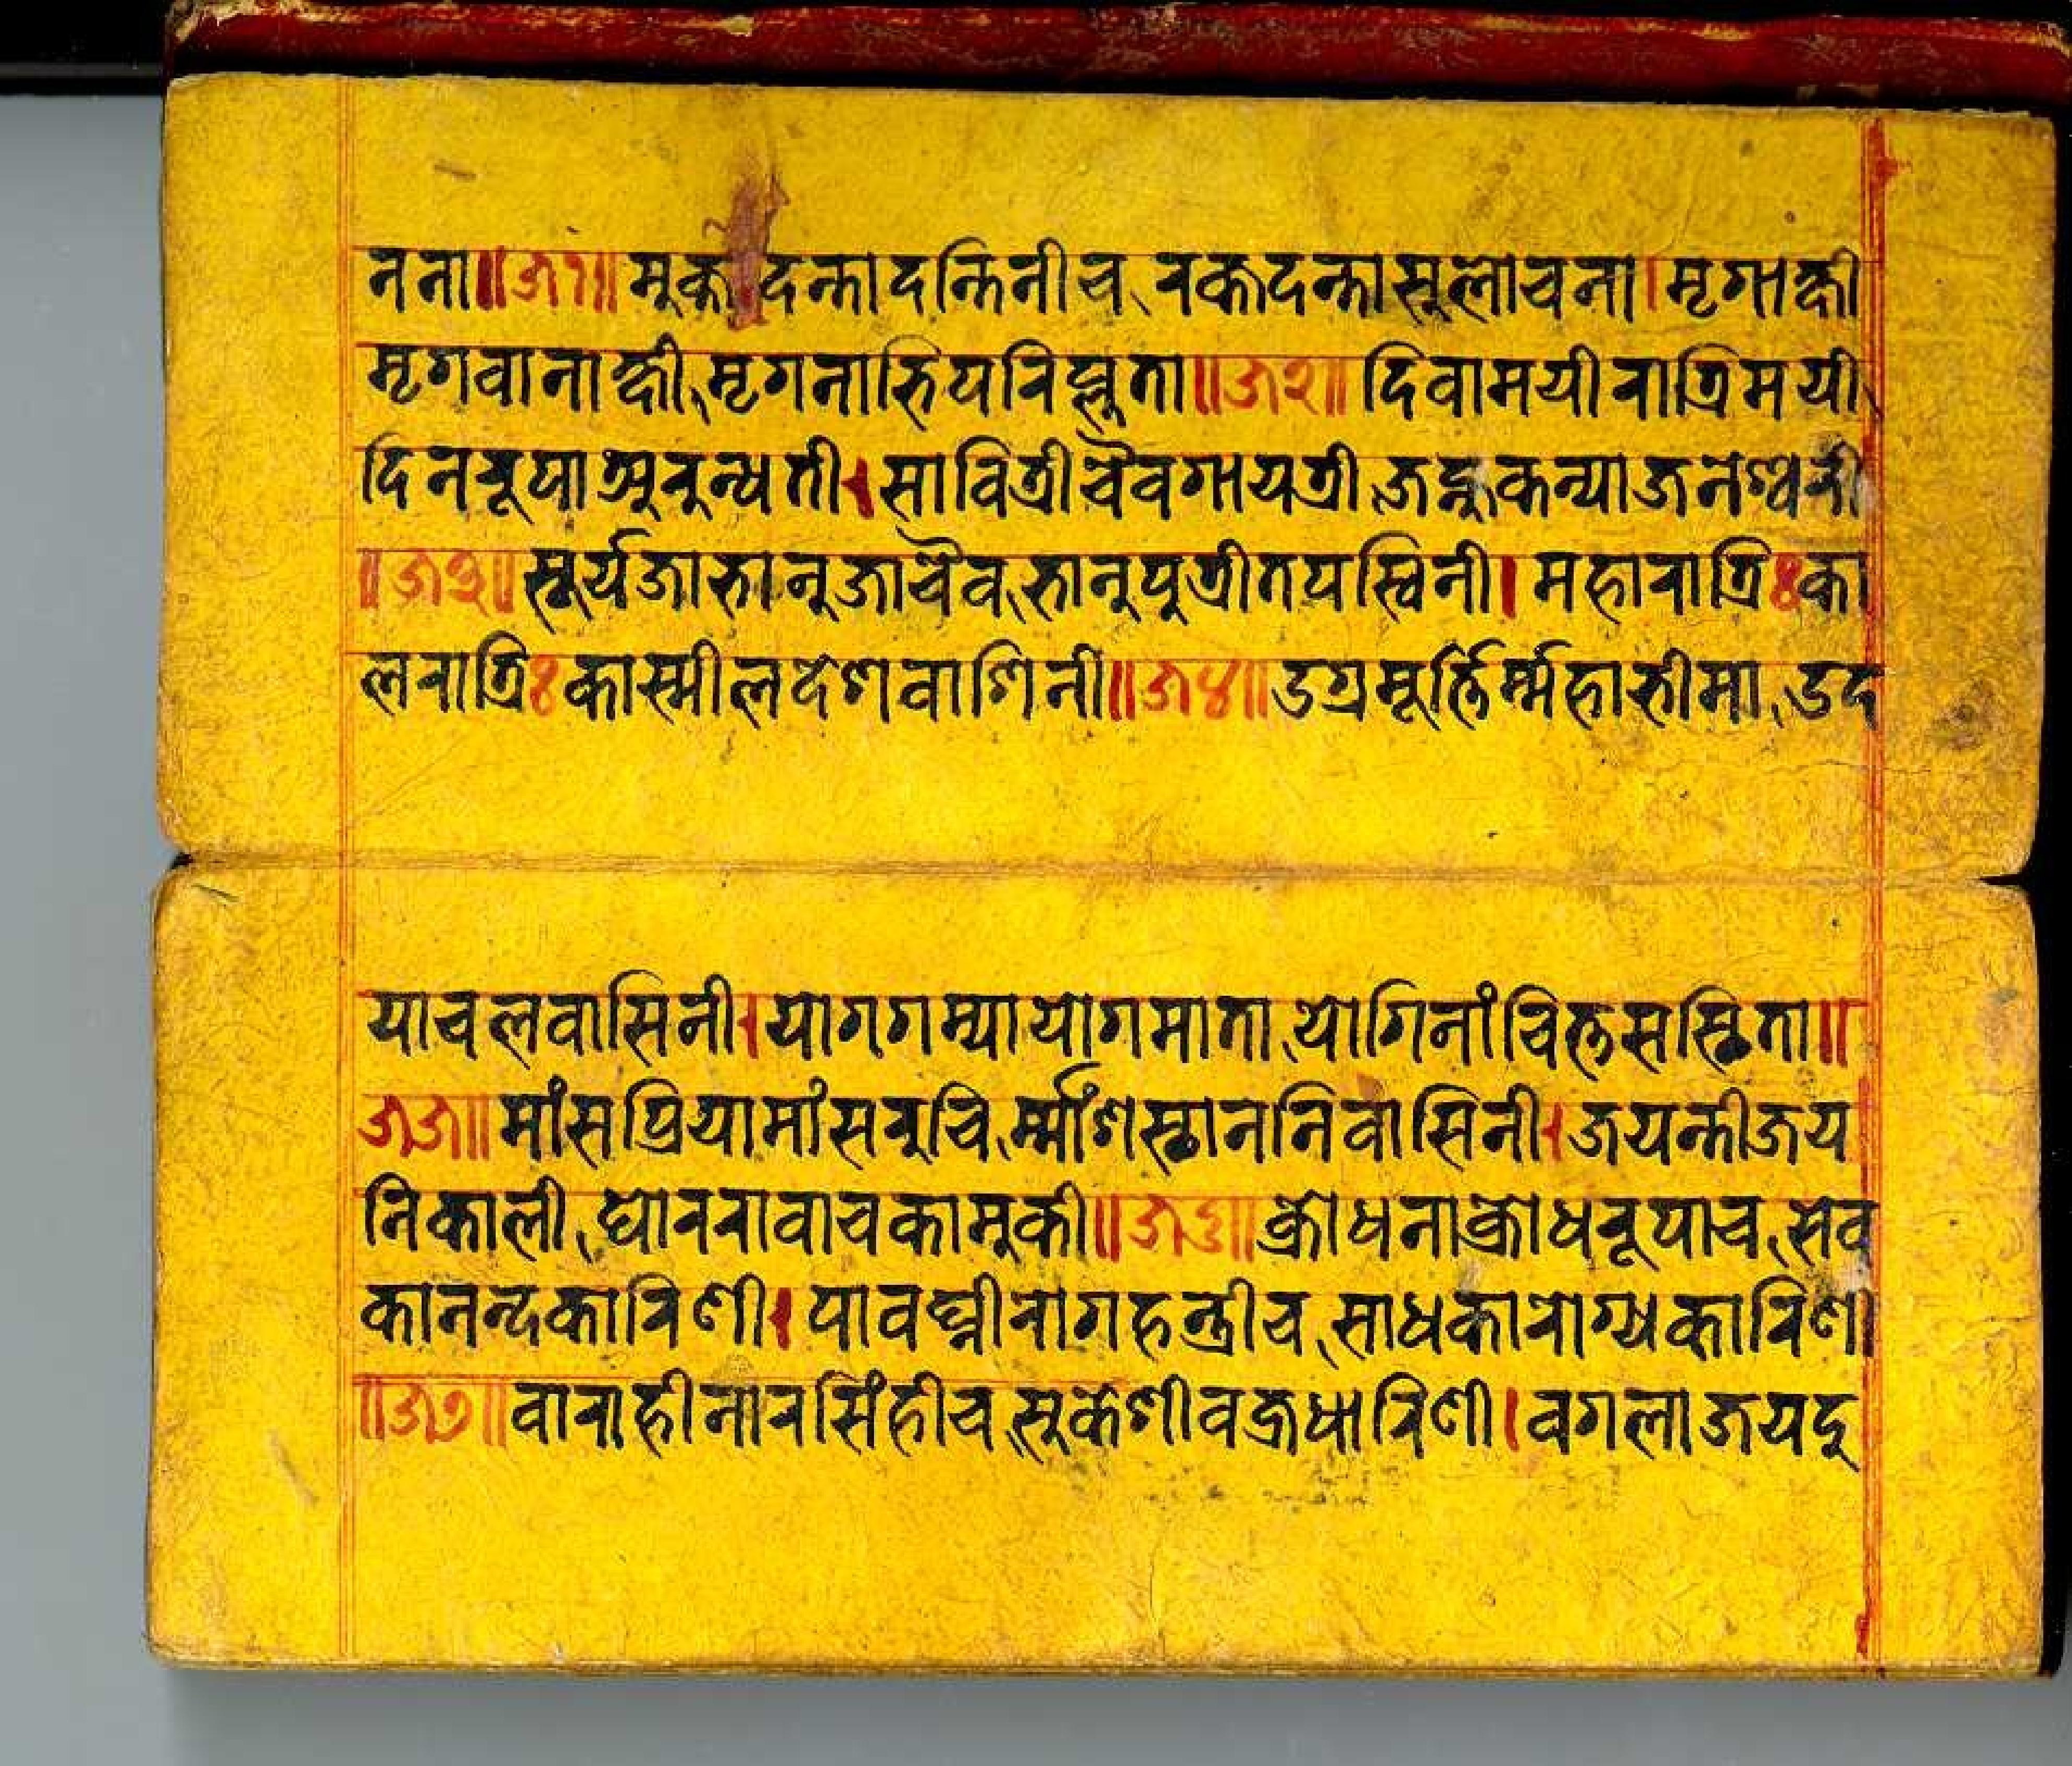 नना॥५१॥मुक्तदन्तादन्तिनीच रक्तदन्तासुलोचना।मृगाक्षी
मृगवानाक्षी मृगनाभिपरिप्लुता॥५२॥दिवामयीरात्रिमयी
दिनरूपाअरुन्धती।सावित्रीचैवगायत्री जह्नुकन्याजनेश्वरी
॥५३॥सूर्यजाभानुजाचैव भानुपुत्रीतपस्विनी।महारात्रिःका
लरात्रिःकास्मीलदेशवाशिनी॥५४॥उग्रमूर्त्तिर्म्महाभीमा उद
याचलवासिनी।योगगम्यायोगमाता योगिनांचित्तसस्थिता॥
५५॥मांसप्रियामांसरुचि र्म्मांशस्थाननिवासिनी।जयन्तीजय
निकाली घोररावाचकामुकी॥५६॥क्रोधनाक्रोधरूपाच सेव
कानन्दकारिणी।पावघ्नीरोगहन्त्रीच साधकारोग्यकारिणी
॥५७॥वाराहीनारसिंहीच सुकेशीवज्रधारिणी।वगलाजयदु